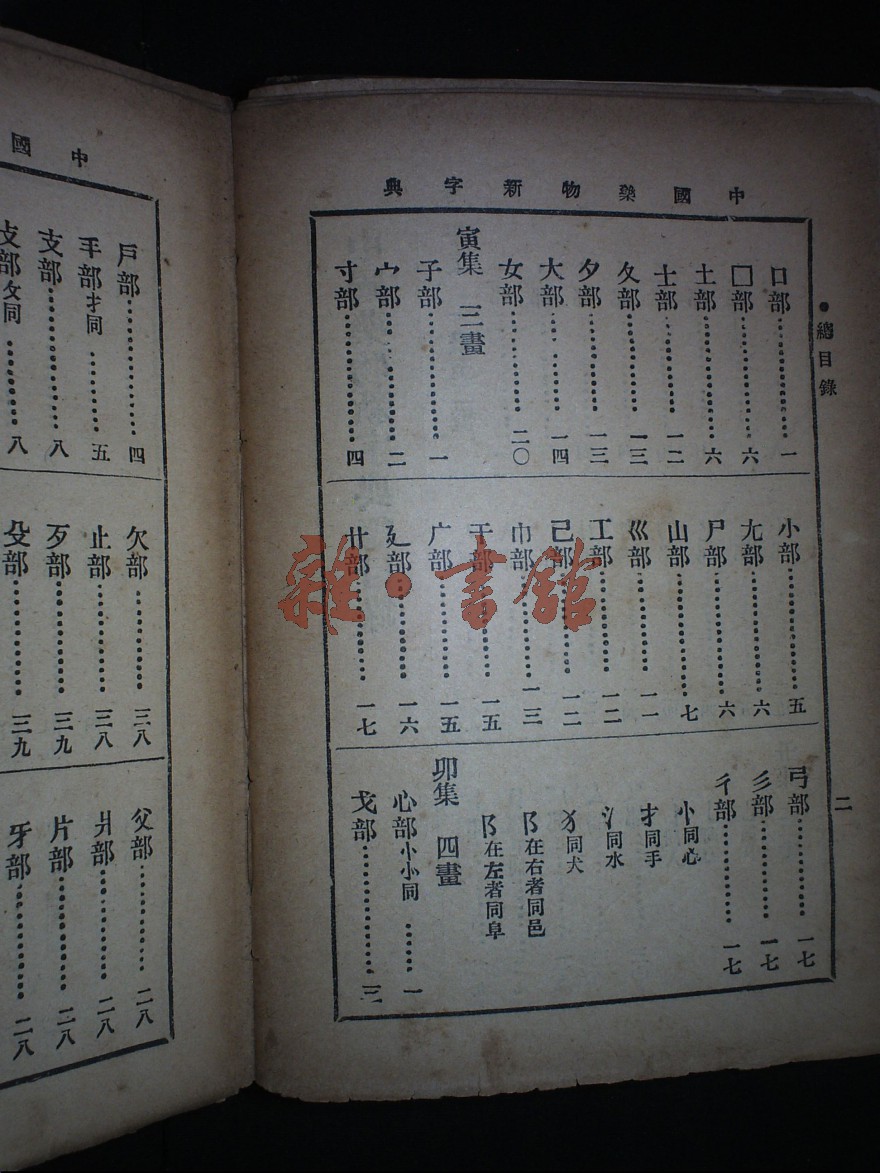 中國藥物新字典
●總目錄
二
口部…………一
囗部…………六
土部…………六
士部…………一二
夂部…………一三
夕部…………一三
大部…………一四
女部…………二〇
寅集 三畫
子部…………一
宀部…………二
寸部…………四
小部…………五
尢部…………六
尸部…………六
山部…………七
巛部…………一一
工部…………一二
己部…………一二
巾部…………一三
干部…………一五
广部…………一五
廴部…………一六
廾部…………一七
弓部…………一七
彡部…………一七
彳部…………一七
忄同心
扌同手
氵同水
犭同犬
阝在右者同邑
阝在左者同阜
卯集 四畫
心部忄㣺同……一
戈部…………三
中國
戶部…………四
手部扌同……五
支部…………八
攴部攵同……八
欠部…………三八
止部…………三八
歹部…………三九
殳部…………三九
父部…………二八
爿部…………二八
片部…………二八
牙部…………二八
雜·書館